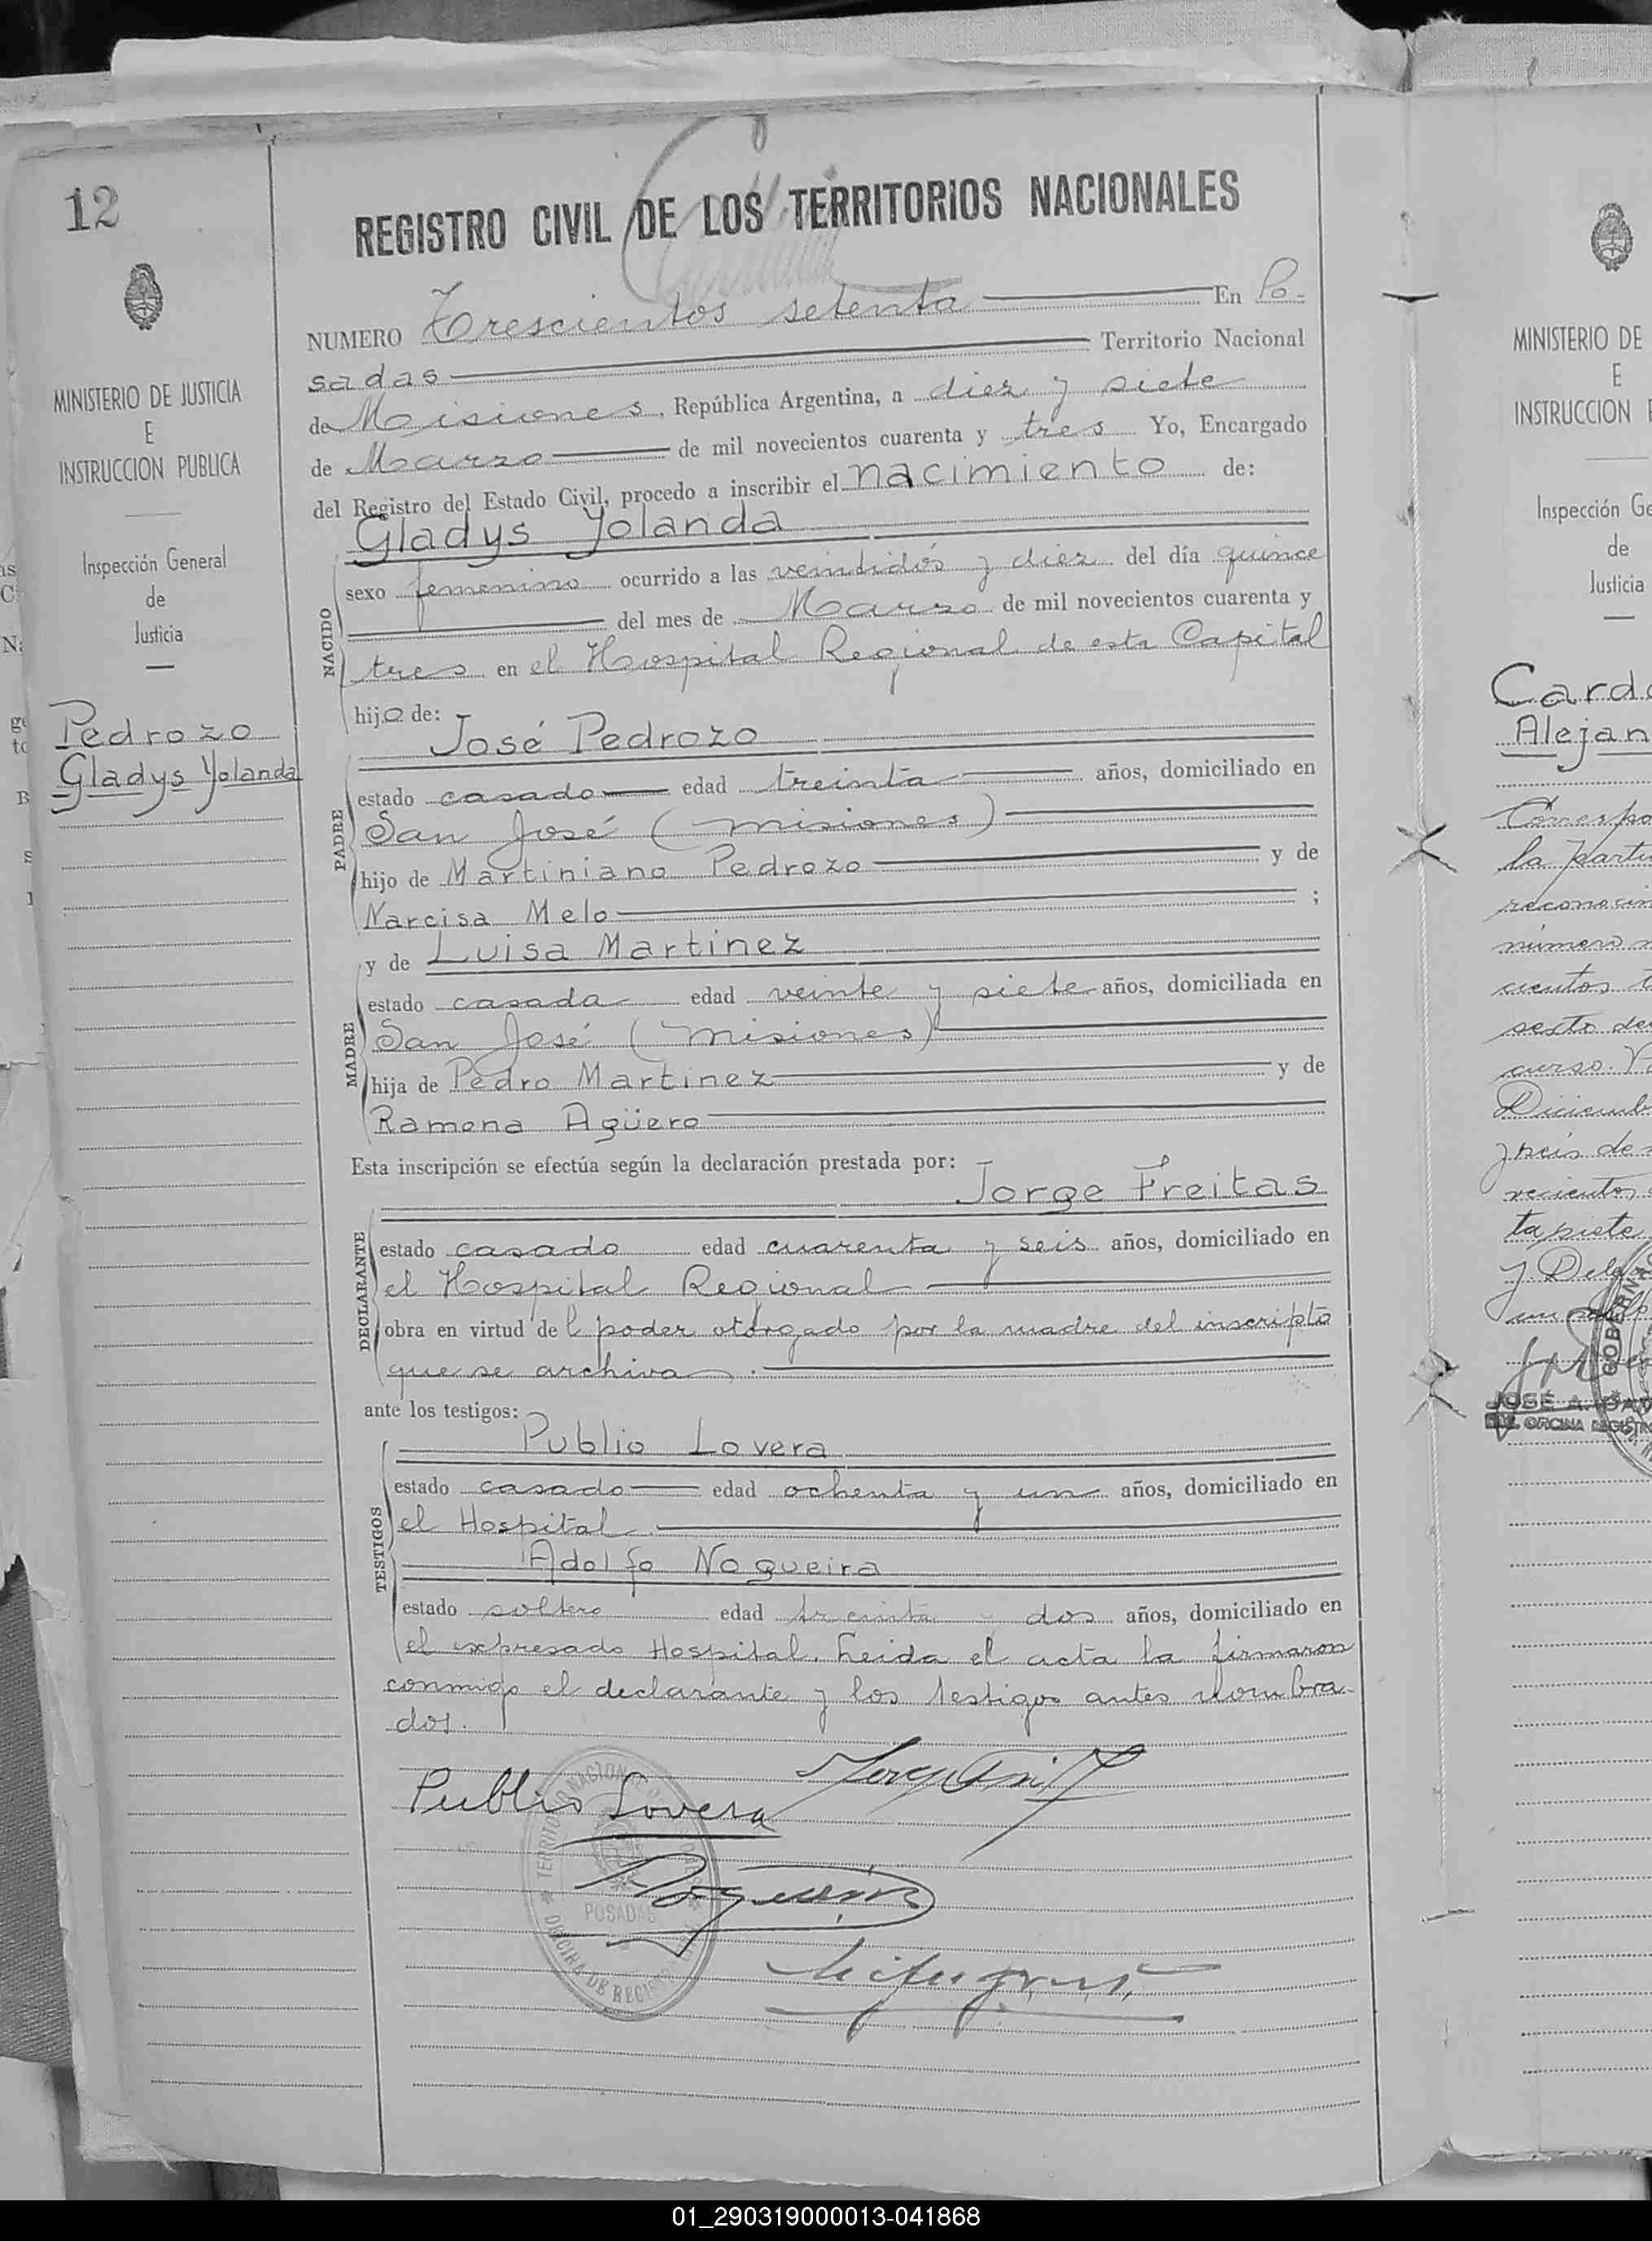 12
MINISTERIO DE JUSTICIA
E
INSTRUCCION PUBLICA
Inspección General
de
Justicia
Pedrozo
Gladys Yolanda
REGISTRO CIVIL DE LOS TERRITORIOS NACIONALES
NUMERO Trescientos setenta En Po-
sadas Territorio Nacional
de Misiones, República Argentina, a diez y siete
de Marzo de mil novecientos cuarenta y tres Yo, Encargado
del Registro del Estado Civil, procedo a inscribir el nacimiento de:
Gladys Yolanda
NACIDO
sexo femenino ocurrido a las veintidós y diez del día quince
del mes de Marzo de mil novecientos cuarenta y
tres en el Hospital Regional de esta Capital
hija de:
José Pedrozo
PADRE
estado casado edad treinta años, domiciliado en
San José (Misiones)
hijo de Martiniano Pedrozo y de
Narcisa Melo ;
y de Luisa Martinez
MADRE
estado casada edad veinte y siete años, domiciliada en
San José (Misiones)
hija de Pedro Martinez y de
Ramona Agüero
Esta inscripción se efectúa según la declaración prestada por:
Jorge Freitas
DECLARANTE
estado casado edad cuarenta y seis años, domiciliado en
el Hospital Regional
obra en virtud del poder otorgado por la madre del inscripto
que se archiva.
ante los testigos:
Publio Lovera
TESTIGOS
estado casado edad ochenta y un años, domiciliado en
el Hospital.
Adolfo Nogueira
estado soltero edad treinta y dos años, domiciliado en
el expresado Hospital. Leida el acta la firmaron
conmigo el declarante y los testigos antes nombra-
dos.
Publio Lovera
POSADAS
OFICINA DE REGISTRO
MINISTERIO DE
E
INSTRUCCION
Inspección Ge
de
Justicia
Card
Alejan
Correspo
la parti
reconocim
número
cientos
sexto de
curso.
Diciemb
y seis de
vecientos
ta siete
JOSÉ A.
01_290319000013-041868